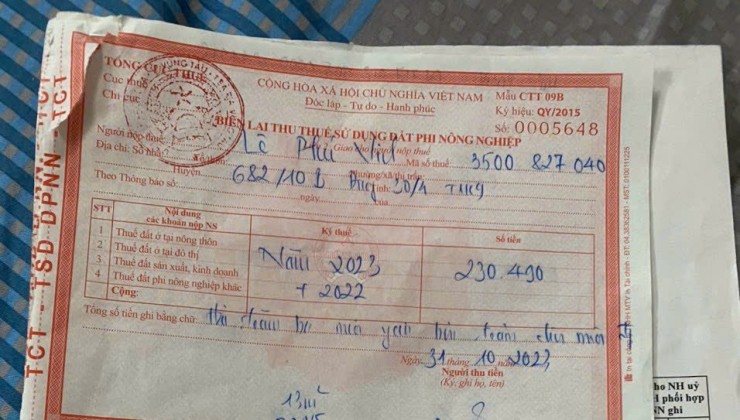 TỔNG CỤC THUẾ
CỘNG HÒA XÃ HỘI CHỦ NGHĨA VIỆT NAM
Mẫu CTT 09B
Cục thuế
Độc lập - Tự do - Hạnh phúc
Ký hiệu: QY/2015
Chi cục
Số: 0005648
BIÊN LAI THU THUẾ SỬ DỤNG ĐẤT PHI NÔNG NGHIỆP
2: Giao cho người nộp thuế
Người nộp thuế: Lê Phú
Mã số thuế 3500 827 040
Địa chỉ: Số nhà
Phường/xã/thị trấn
Huyện 682/10 30/4
Theo Thông báo số: ngày của
STT Nội dung các khoản nộp NS Kỳ thuế Số tiền
1 Thuế đất ở tại nông thôn
2 Thuế đất ở tại đô thị
3 Thuế đất sản xuất, kinh doanh
4 Thuế đất phi nông nghiệp khác
Năm 2023 + 2022
230.490
Cộng:
Tổng số tiền ghi bằng chữ: trăm ba mươi trăm
Ngày 31 tháng 10 năm 2023
Người thu tiền
(Ký, ghi họ, tên)
TCT - TSD ĐPNN - TCT
VŨNG TÀU
ho NH uỷ
phối hợp
N ghi